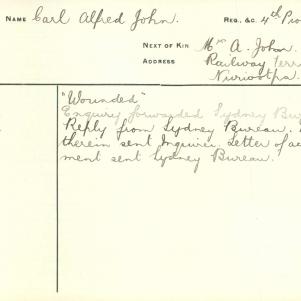 NAME Carl Alfred John. REG. &C. 4th Pio
NEXT OF KIN Mrs A. John.
ADDRESS Railway Terr
Nuriootpa.
"Wounded"
Enquiry forwarded Sydney Bur
Reply from Sydney Bureau.
therein sent Inquirer. Letter of ac
ment sent Sydney Bureau.